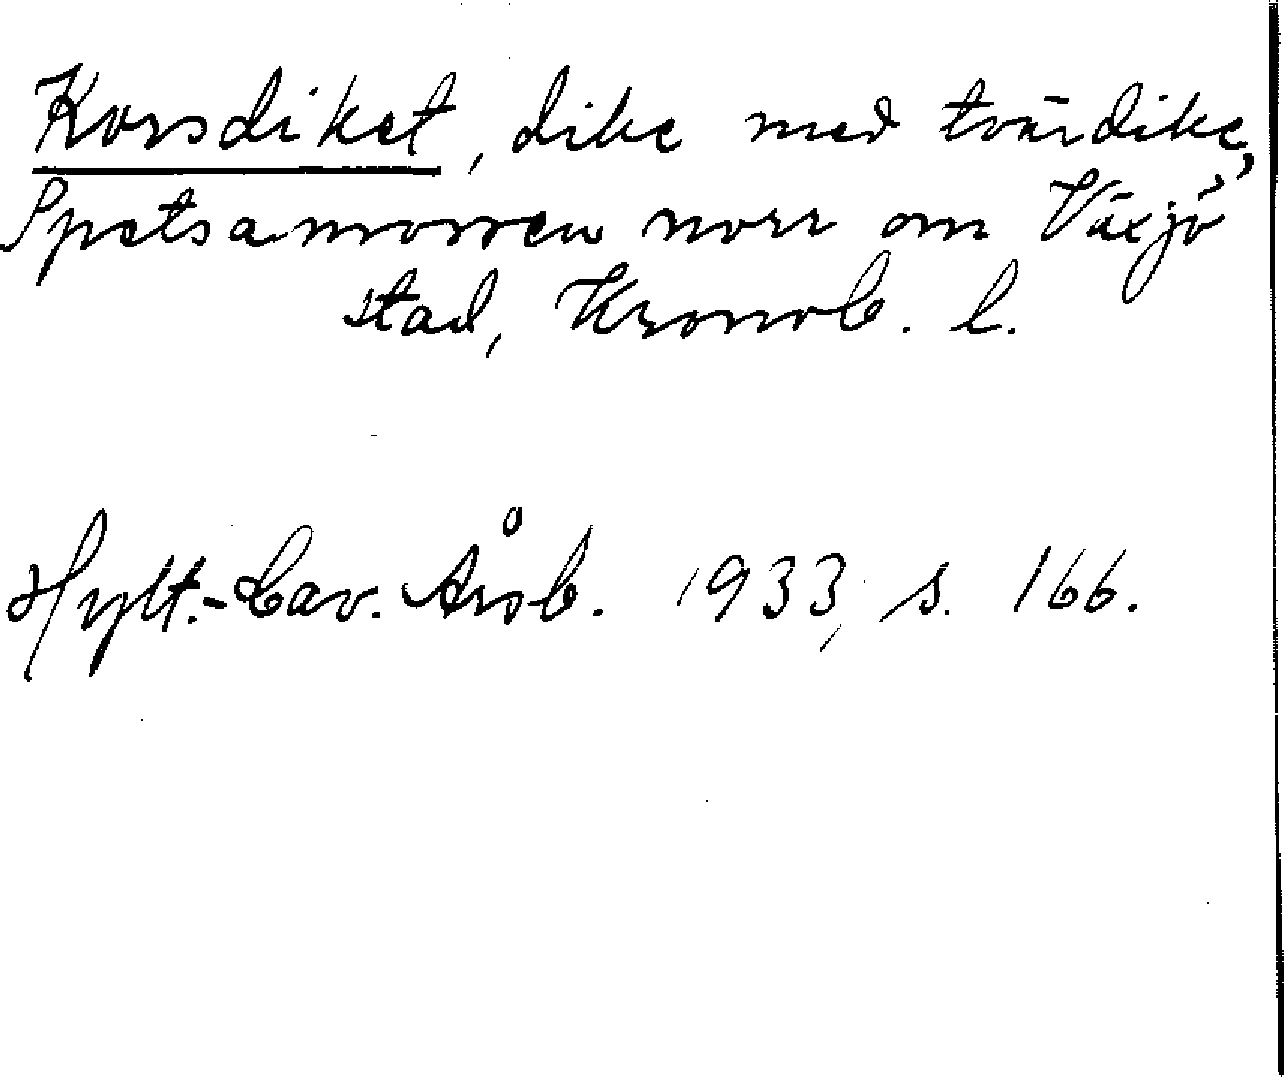 Korsdiket, dike med tvärdike,
Spetsamossen norr om Växjö
stad, Kronob. l.
Hylt.-Cav. Årsb. 1933, s. 166.